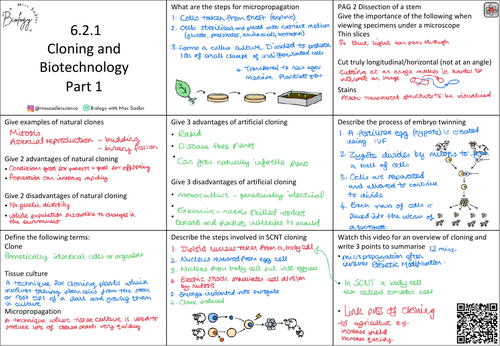 Biology
Miss Sadler
6.2.1
Cloning and
Biotechnology
Part 1
@misssadlerscience
Biology with Miss Sadler
What are the steps for micropropagation
1. Cells taken from shoot (explant)
2. Cells sterilised and placed into nutrient medium
(glucose, phosphates, amino acids, hormones)
3. Forms a callus culture. Divided to produce
lots of small clumps of undifferentiated cells
4. Transferred to new agar
medium. Plantlets grow
PAG 2 Dissection of a stem
Give the importance of the following when
viewing specimens under a microscope
Thin slices
So that light can pass through
Cut truly longitudinal/horizontal (not at an angle)
Cutting at an angle makes it harder to
interpret an image
Stains
Allow transparent structures to be visualised
Give examples of natural clones
Mitosis
Asexual reproduction - budding
- binary fission
Give 2 advantages of natural cloning
Conditions good for parent = good for offspring
Population can increase rapidly
Give 2 disadvantages of natural cloning
No genetic diversity
Whole population susceptible to changes in
the environment
Give 3 advantages of artificial cloning
Rapid
Disease free plants
Can grow naturally infertile plants
Give 3 disadvantages of artificial cloning
Monoculture - genetically identical
Expensive - needs skilled workers
Describe the process of embryo twinning
1. A fertilised egg (zygote) is created
using IVF
2. Zygote divides by mitosis to form
a ball of cells
3. Cells are separated
and allowed to continue
to divide
4. Each mass of cells is
placed into the womb of
a surrogate
Define the following terms:
Clone
Genetically identical cells or organisms
Tissue culture
A technique for cloning plants which
involves taking stem cells from the stem
or root tips of a plant and growing them
in culture
Micropropagation
A technique where tissue culture is used to
produce lots of cloned plants very quickly
Describe the steps involved in SCNT cloning
1. Diploid nucleus taken from a body cell
2. Nucleus removed from egg cell
3. Nucleus from body cell put into egg cell
4. Electric shock stimulates cell division
by mitosis
5. Embryo implanted into surrogate
6. Clone produced
Watch this video for an overview of cloning and
write 3 points to summarise
12 mins
micropropagation often
involves Genetic Modification
In SCNT a body cell
also called somatic cell
Link pros of cloning
to agriculture e.g.
increase yield